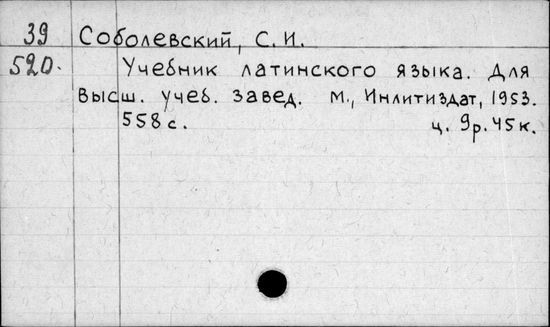 39 Соболевский, С.И.
520. Учебник латинского языка. Для
Высш. учеб. завед. М., Инлитиздат, 1953.
558 с. ц. 9р. 45 к.